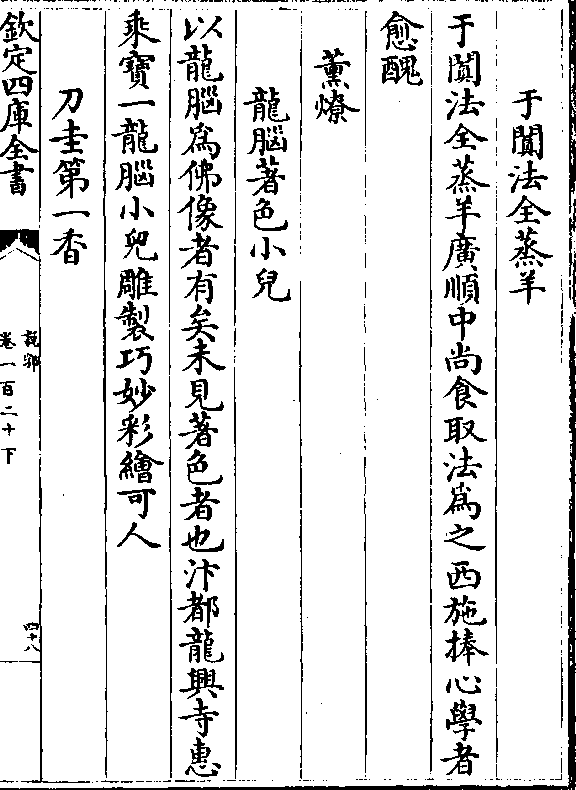 于闐法全蒸羊
于闐法全蒸羊廣順中尚食取法為之西施捧心學者
愈醜
薰燎
龍腦著色小兒
以龍腦為佛像者有矣未見著色者也汴都龍興寺惠
乘寶一龍腦小兒雕製巧妙彩繪可人
刀圭第一香
欽定四庫全書
說郛
卷一百二十下
四十八